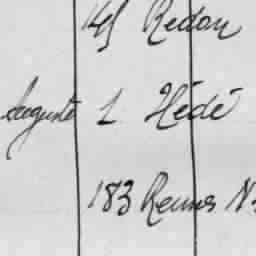 145 Redon
Auguste 1 Hédé
183 Rennes N